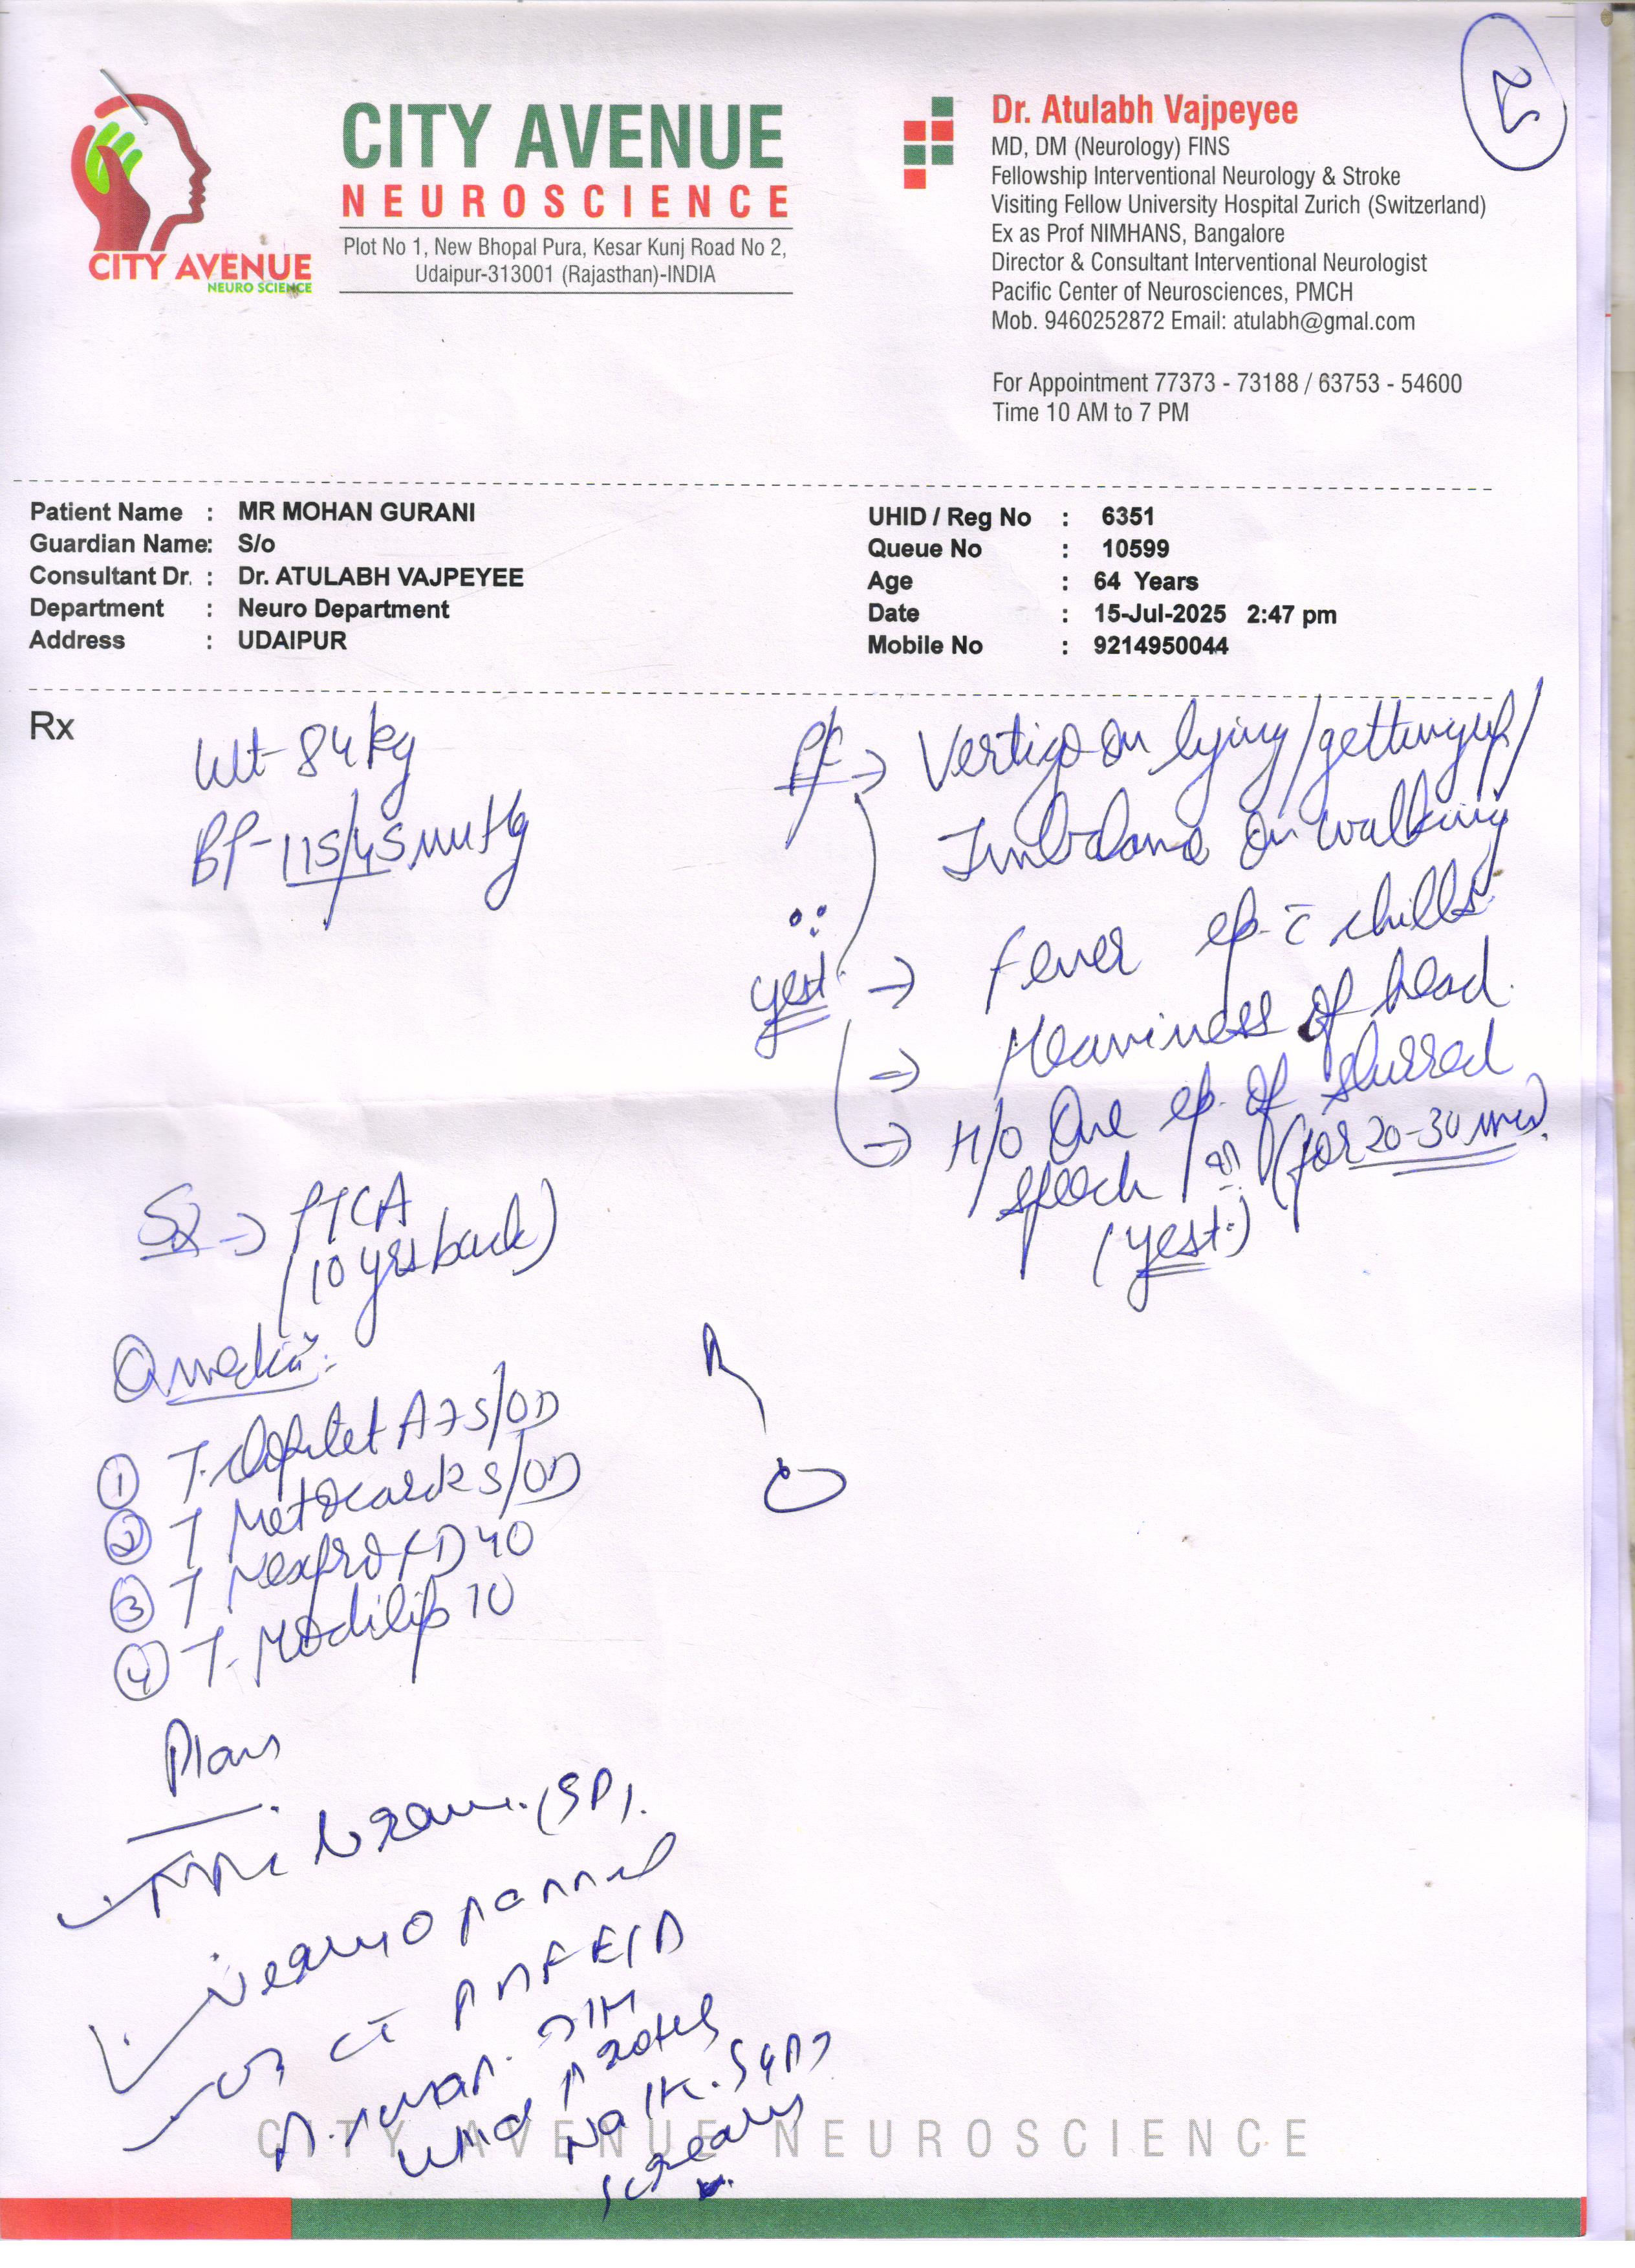 25
CITY AVENUE
NEURO SCIENCE
CITY AVENUE
NEUROSCIENCE
Plot No 1, New Bhopal Pura, Kesar Kunj Road No 2,
Udaipur-313001 (Rajasthan)-INDIA
Dr. Atulabh Vajpeyee
MD, DM (Neurology) FINS
Fellowship Interventional Neurology & Stroke
Visiting Fellow University Hospital Zurich (Switzerland)
Ex as Prof NIMHANS, Bangalore
Director & Consultant Interventional Neurologist
Pacific Center of Neurosciences, PMCH
Mob. 9460252872 Email: atulabh@gmal.com
For Appointment 77373 - 73188 / 63753 - 54600
Time 10 AM to 7 PM
Patient Name : MR MOHAN GURANI
Guardian Name: S/o
Consultant Dr. : Dr. ATULABH VAJPEYEE
Department : Neuro Department
Address : UDAIPUR
UHID / Reg No : 6351
Queue No : 10599
Age : 64 Years
Date : 15-Jul-2025 2:47 pm
Mobile No : 9214950044
Rx
Wt- 84kg
BP- 115/45 mmHg
→ Vertigo on lying/getting up/
Imbalance on walking
yest. → fever ep. c̄ chills
→ Heaviness of head.
→ H/o One ep. of slurred
speech (for 20-30 min)
(yest.)
→ PTCA
(10 yrs back)
① T. Clopilet A 75/OD
② T Metocard 25/OD
③ T Nexpro RD 40
④ T. Modlip 10
Plan
MRI brain. (SP).
pannel
CITY AVENUE NEUROSCIENCE